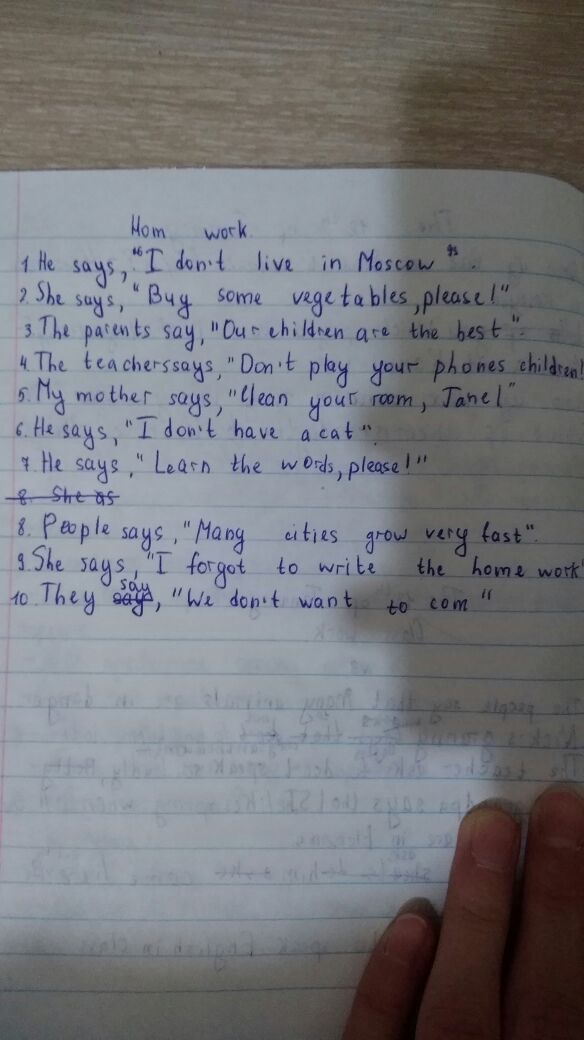 Hom work
1. He says, "I don't live in Moscow".
2. She says, "Buy some vegetables, please!"
3. The parents say, "Our children are the best".
4. The teacherssays, "Don't play your phones children!
5. My mother says, "Clean your room, Jane!"
6. He says, "I don't have a cat".
7. He says, "Learn the words, please!"
8. She as
8. People says, "Many cities grow very fast".
9. She says, "I forgot to write the home work"
10. They say say, "We don't want to com"